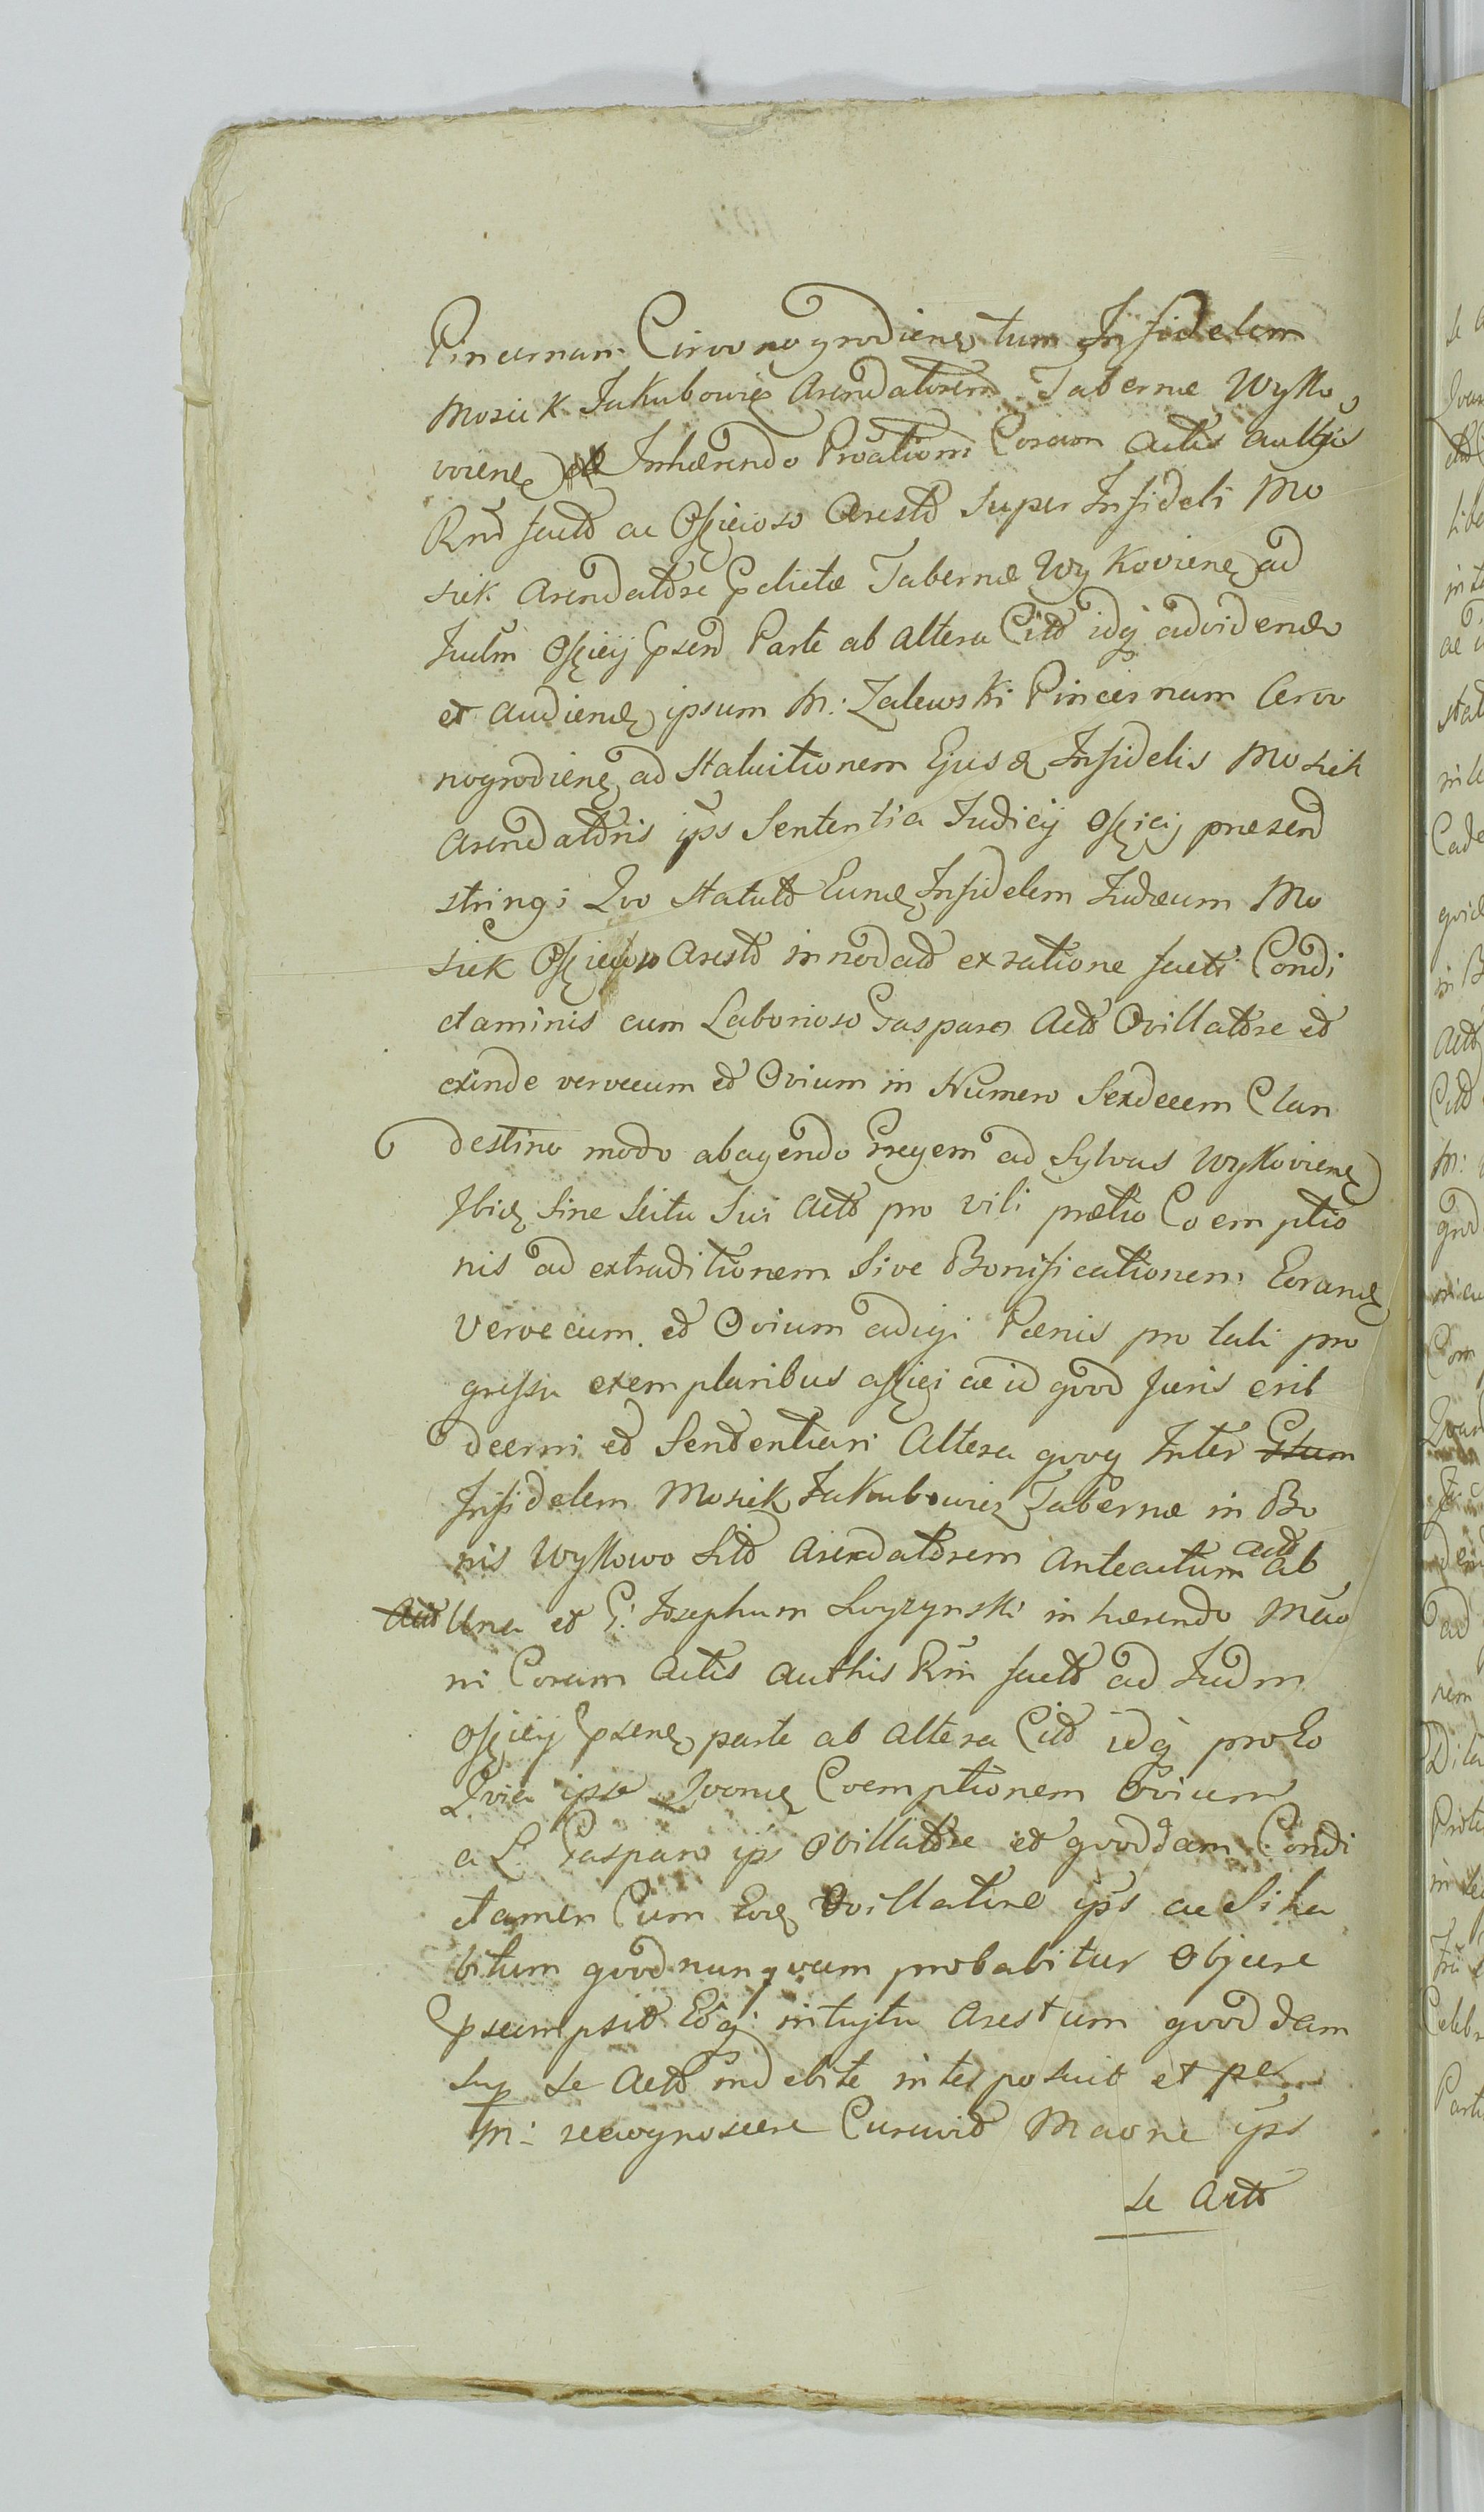 Pincernam Cirwonogrodiens tum Infidelem
Mosiek Jakubowicz Arendatorem Tabernæ Wyko
viens et Inhærendo Pröationi Coram Actis authis
Rnd fact ac Officioso Arest Super Infideli Mo
siek Arendatore Prelictæ Tabernæ Wykoviens ad
Judm Officij Psend Parte ab altera Cit idq advidend
et audiend ipsum M: Zalewski Pincernam Cerwo
nogrodiens ad Statuitionem Ejusd Infidelis Mosiek
Arendatoris ips Sententia Judicij Officij præsend
stringi Quo Statuto Eund Infidelem Judæum Mo
siek Officioso Aresto innodat ex ratione facti Condi
ctaminis cum Laborioso Gasparo Act Ovillatore et
exinde vervecum et Ovium in Numero Sexdecem Clan
destino modo abagendo Gregem ad Sylvas Wykoviens
Ibid Sine Scitu Sui Act pro vili prætio Coemptio
nis ad extraditionem Sive Bonificationem Eorund
Vervecum et Ovium adigi Pœnis pro tali pro
gressu exemplaribus affici ac id quod Juris erit
decerni et Sententiari Altera quoq Inter
Infidelem Mosiek Jakubowicz Tabernæ in Bo
nis Wykowo Sit Arendatorem Anteactum Act ab
Act Una et G: Josephum Luzynski inhærendo Mäo
ni Coram Actis Authis Rm fact ad Judm
Officij Psens parte ab altera Cit idq pro Eo
Quia ipse Quond Coemptionem Ovium
a L. Gasparo ips Ovillatore et quoddam Condi
ctamen Cum Eod Ovillatore ips ac Si ha
bitum quod nunquam probabitur Objicere
Psumpsit Eoq intuitu Arestum quoddam
Sup Se Act indebite interposuit et per
M: recognoscere Curavit Maone ips
Se Act